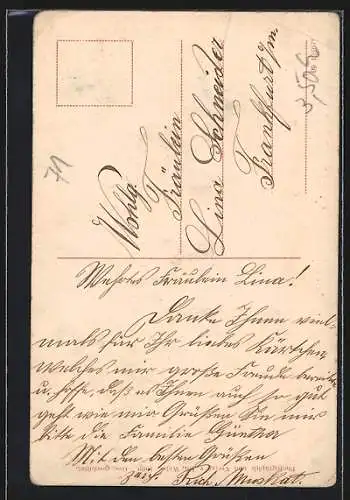 Wohlg.
Fräulein
Lina Schneider
Frankfurt a/m.
71
Wehrtes Fräulein Lina!
Danke Ihnen viel-
mals für Ihr liebes Kärtchen
welches mir große Freude bereitet
u. hoffe, daß es Ihnen auch so gut
geht wie mir Grüßen Sie mir
bitte die Familie Günther
Mit den besten Grüßen
Muskat.